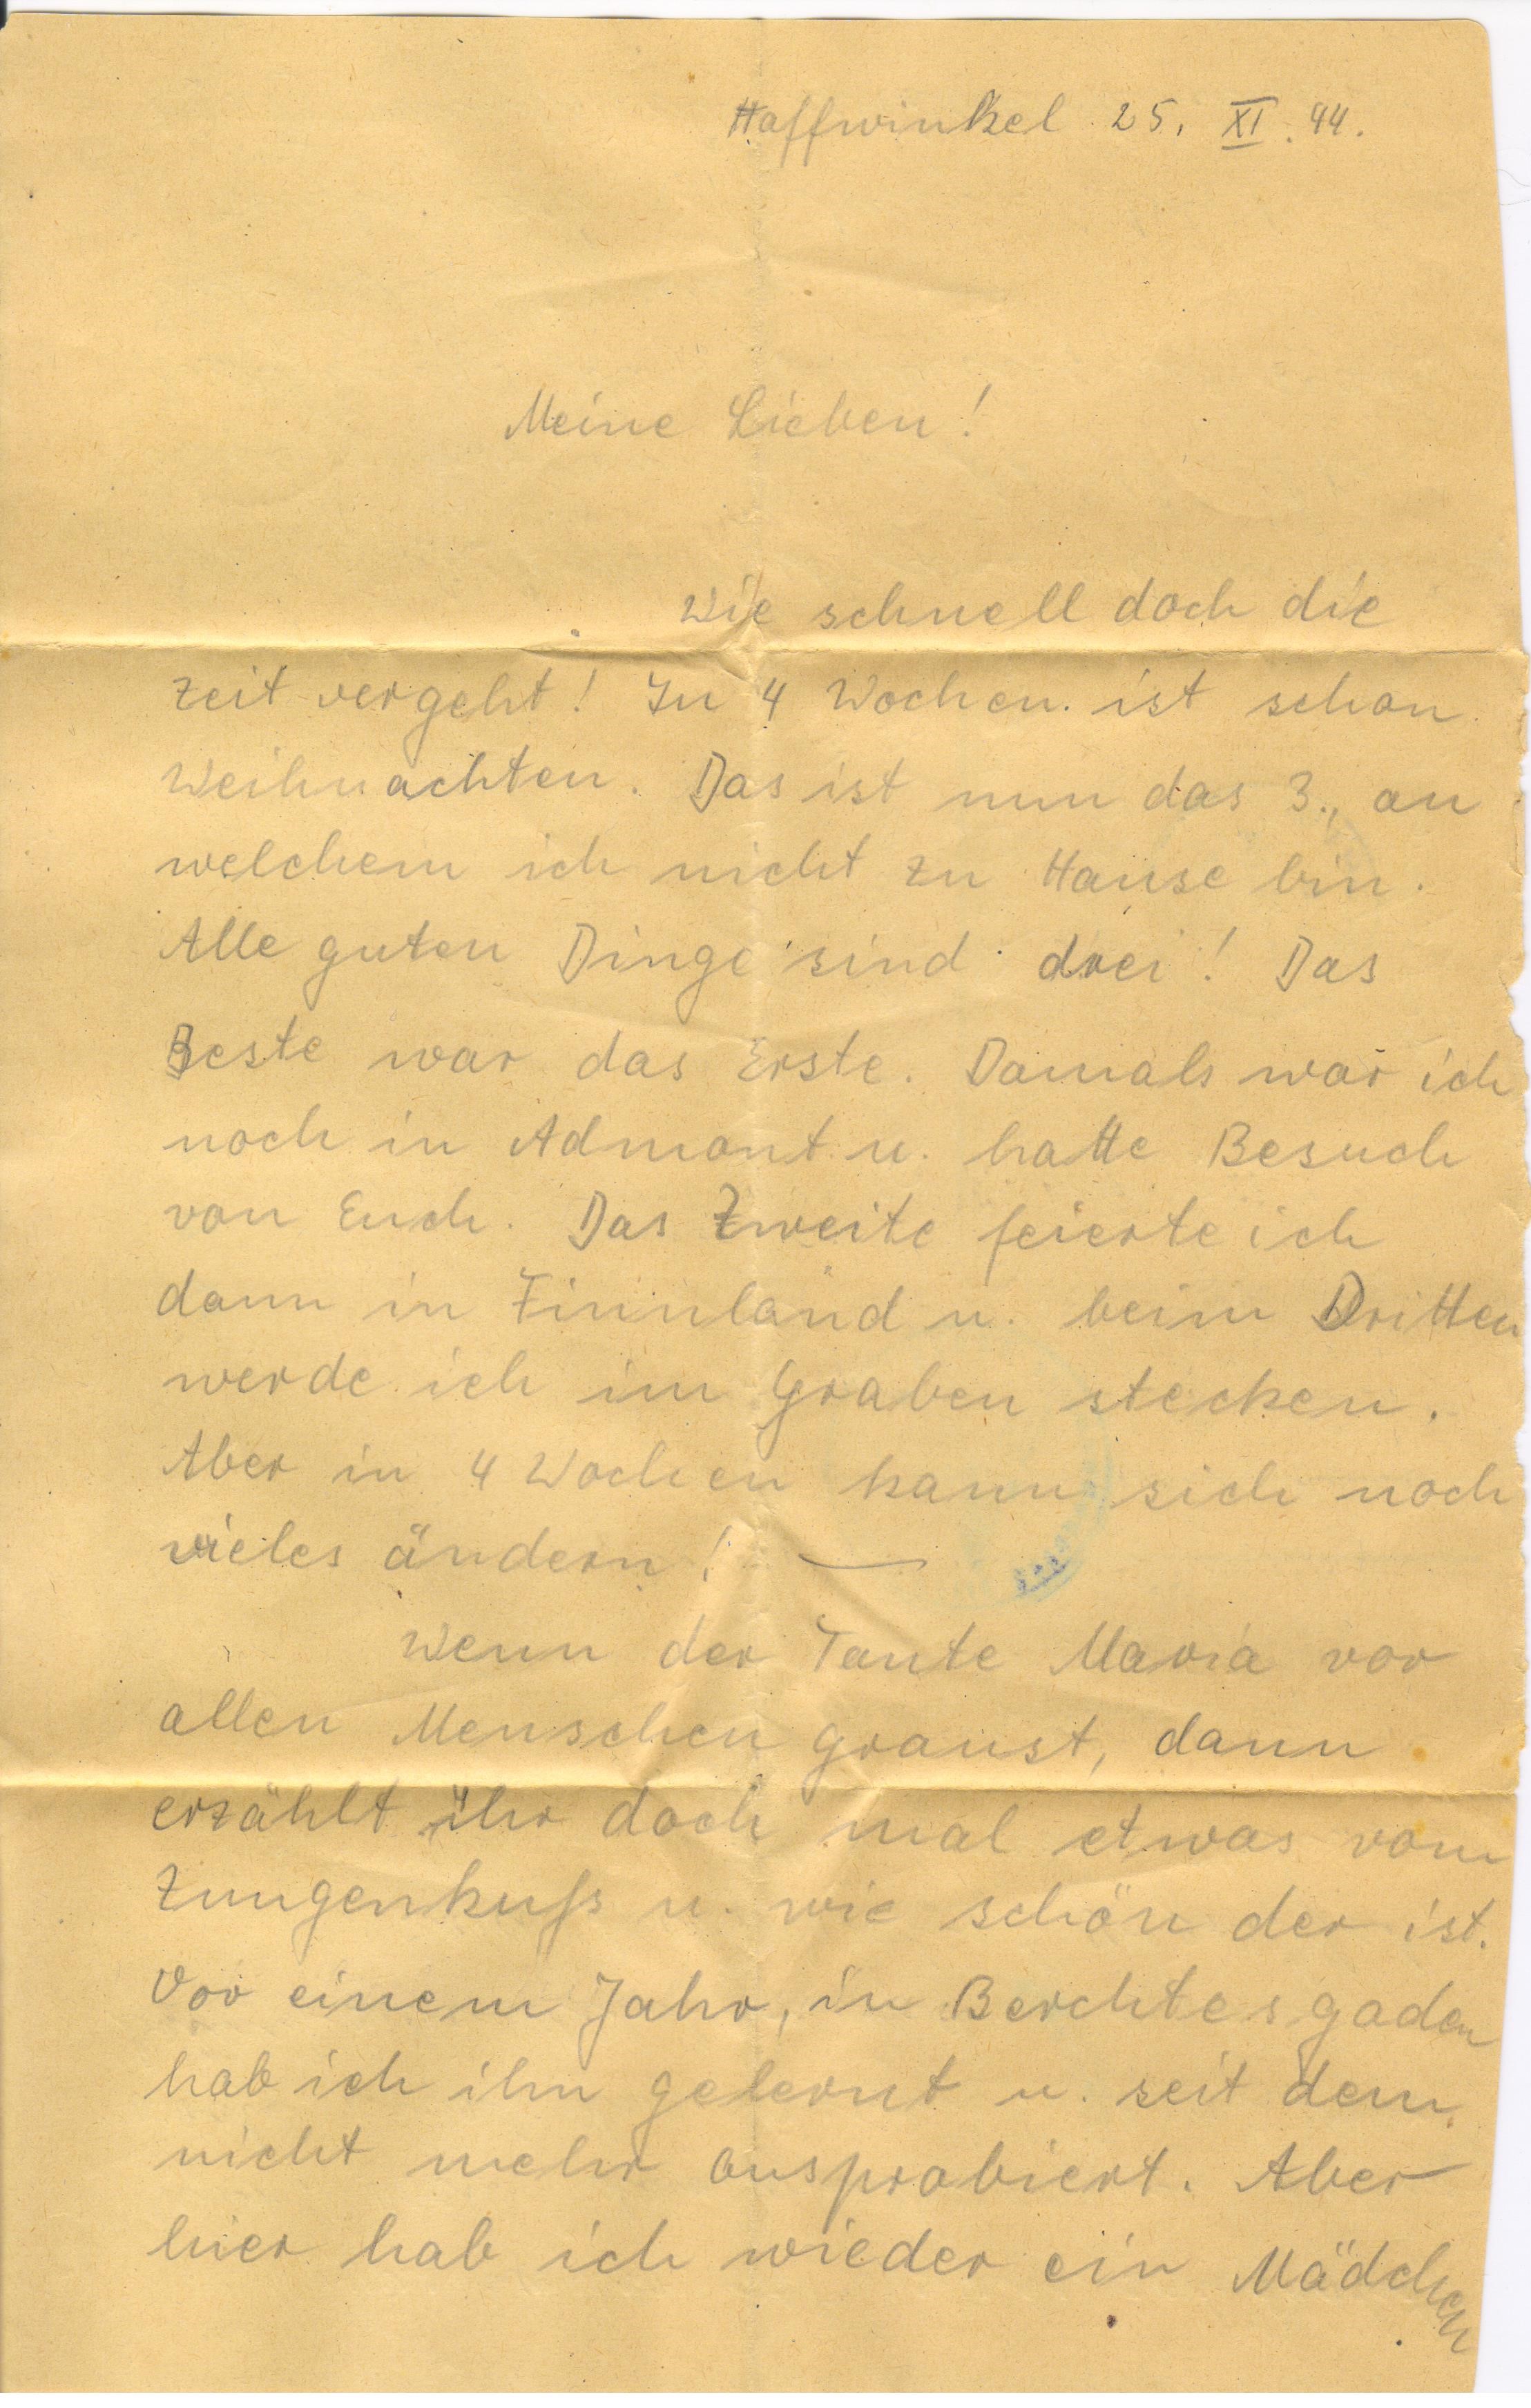 Haffwinkel 25. XI. 44.
Meine Lieben!
Wie schnell doch die
Zeit vergeht! In 4 Wochen ist schon
Weihnachten. Das ist nun das 3., an
welchem ich nicht zu Hause bin.
Alle guten Dinge sind drei! Das
Beste war das Erste. Damals war ich
noch in Admont u. hatte Besuch
von Euch. Das Zweite feierte ich
dann in Finnland u. beim Dritten
werde ich im Graben stecken.
Aber in 4 Wochen kann sich noch
vieles ändern! —
Wenn der Tante Maria vor
allen Menschen graust, dann
erzählt ihr doch mal etwas vom
Zungenkuß u. wie schön der ist.
Vor einem Jahr, in Berchtesgaden
hab ich ihn gelernt u. seit dem
nicht mehr ausprobiert. Aber
hier hab ich wieder ein Mädchen